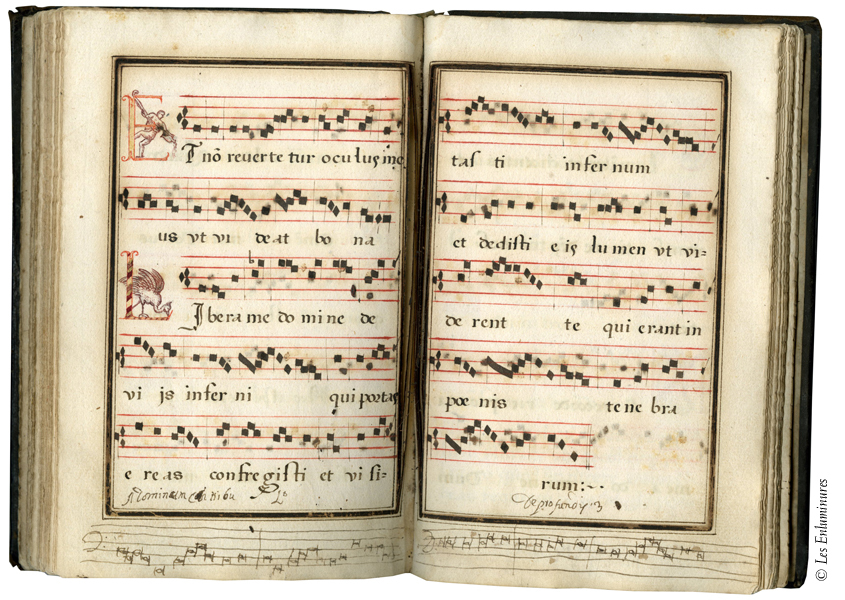 ET nõ reverte tur oculus me
us vt vi de at bo na
LIbera me do mi ne de
vi js infer ni qui portas
e re as confregisti et vi si-
Ad dominum
tas ti infer num
et dedisti e is lu men vt vi-
de rent te qui erant in
poe nis te ne bra
rum:
© Les Enluminures